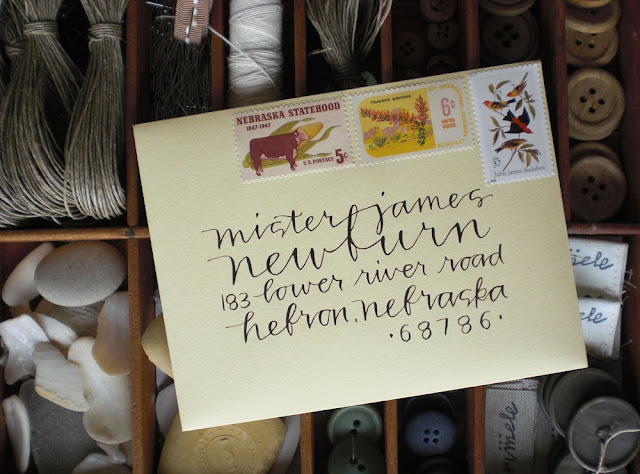 NEBRASKA STATEHOOD
1867-1967
U.S. POSTAGE 5c
6c
UNITED STATES
37
John James Audubon
mister james
newburn
183 lower river road
hebron, nebraska
·68786·